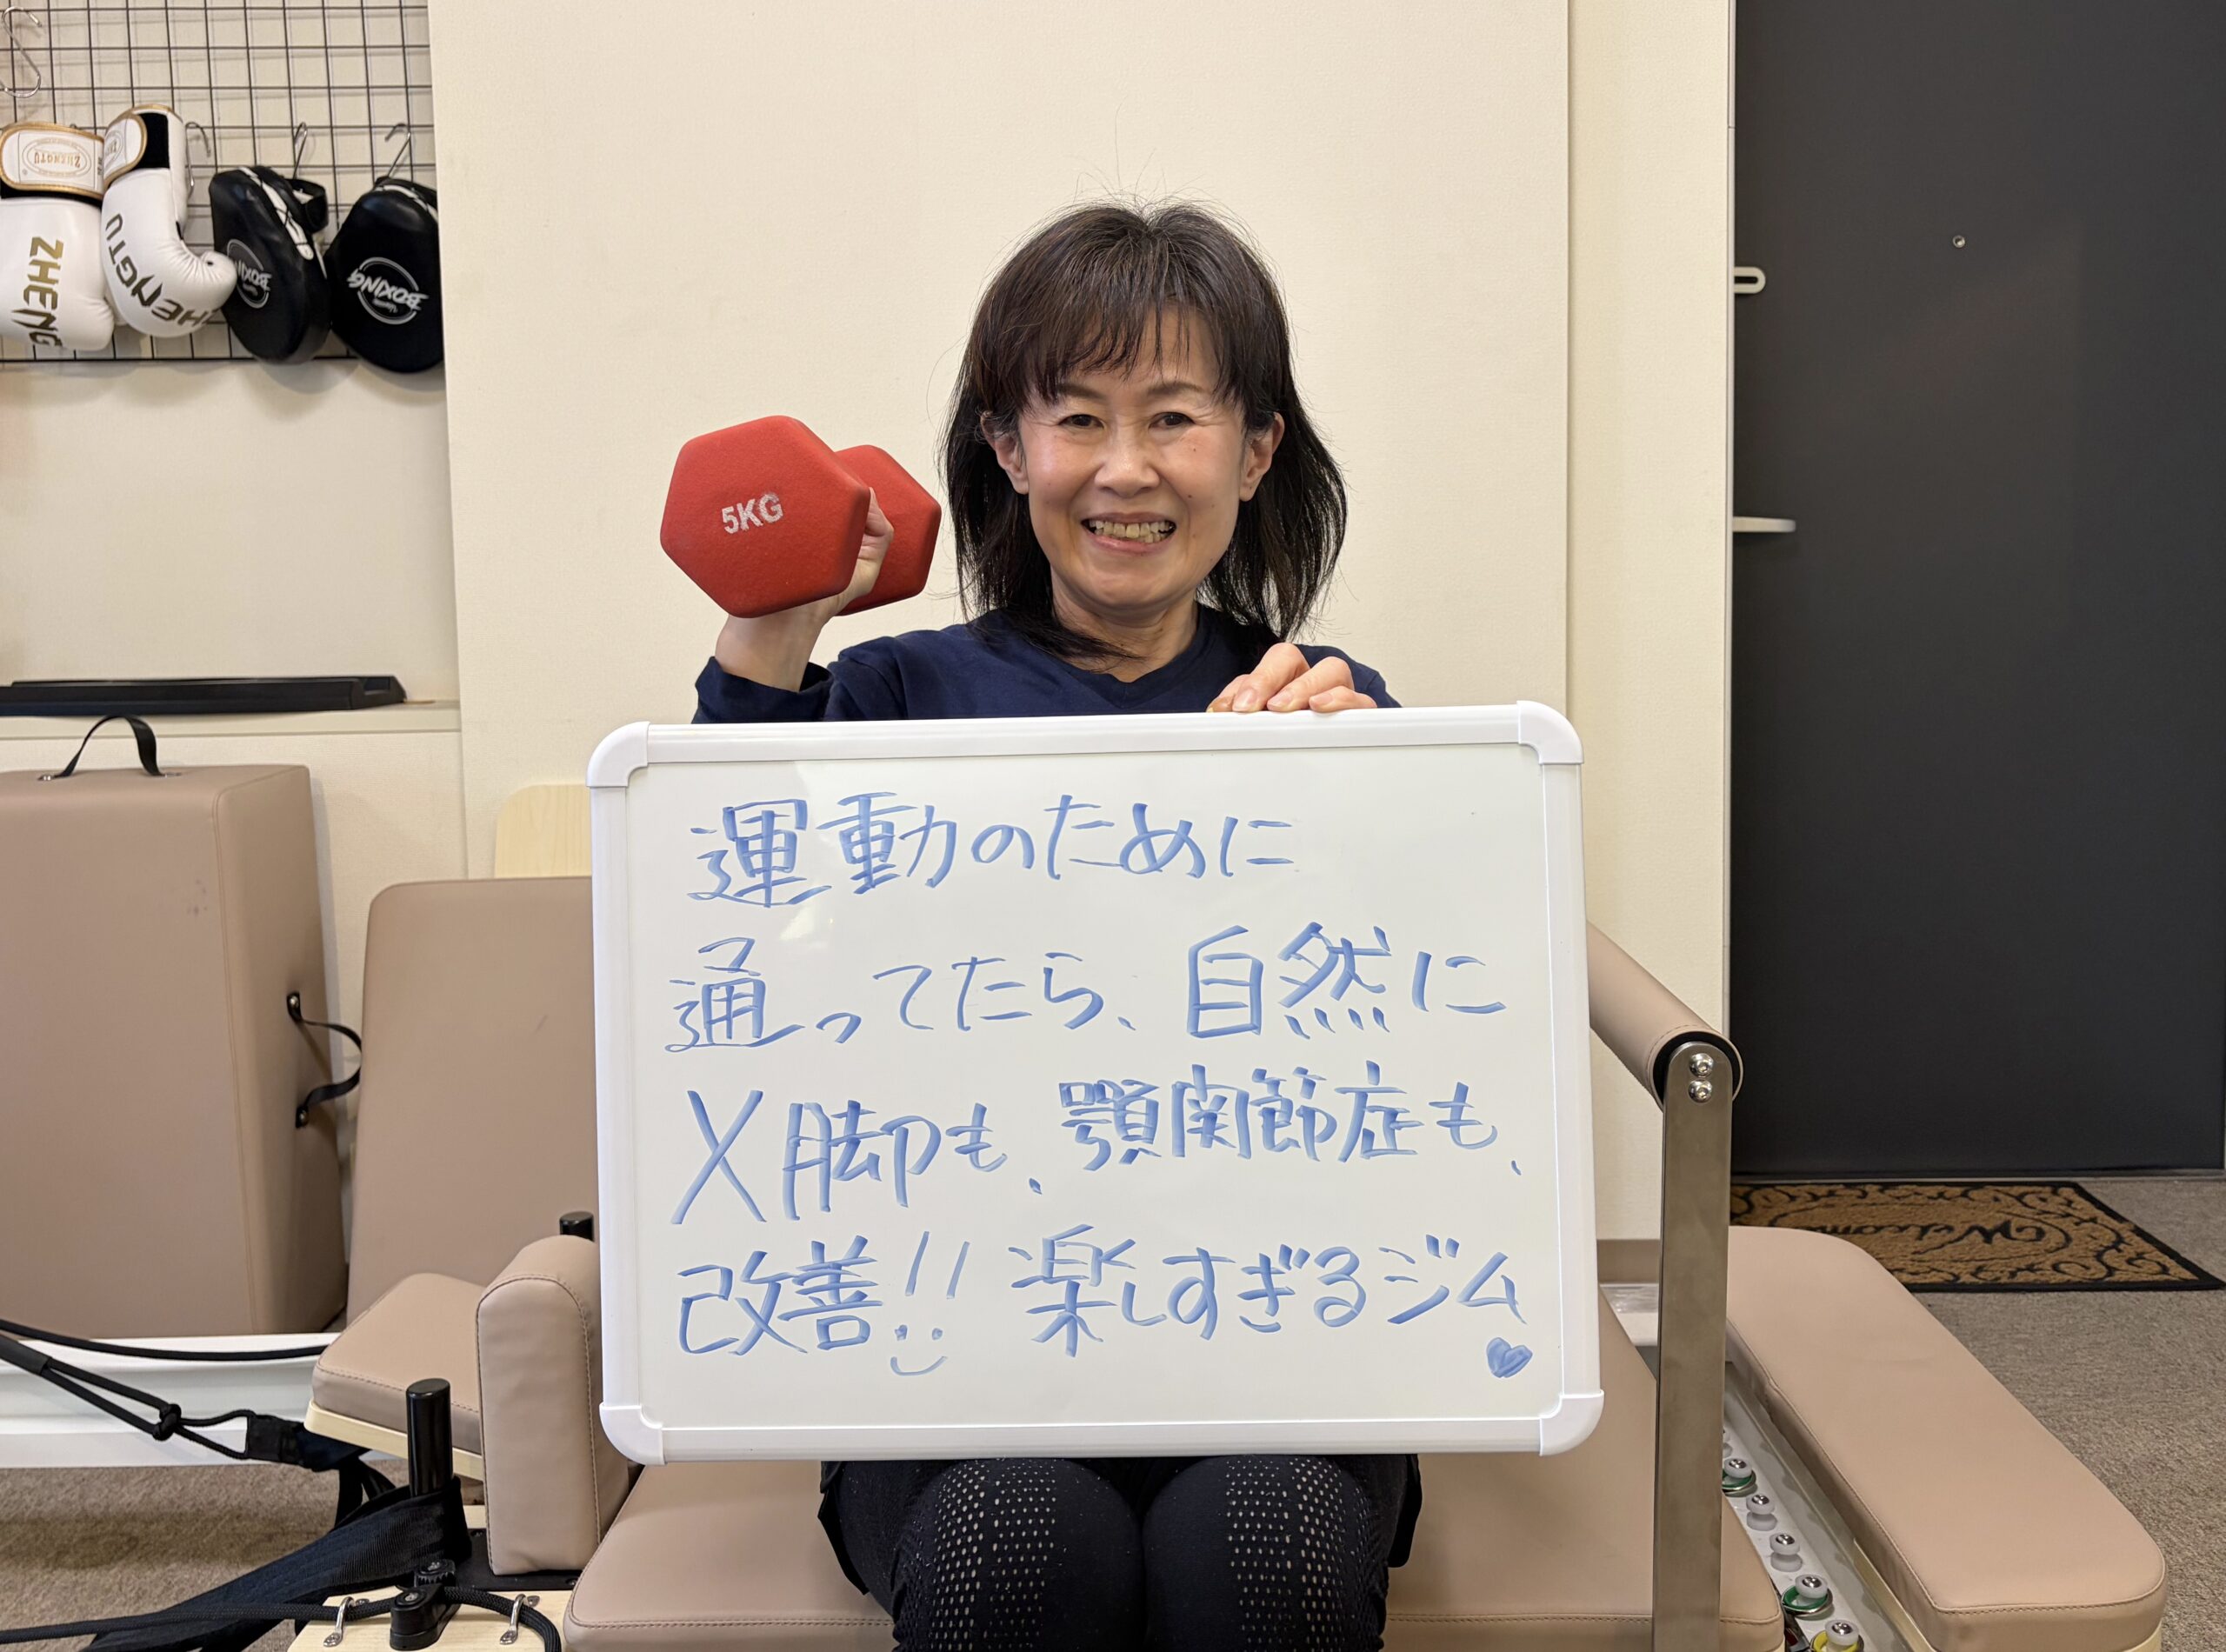 ZHENGTU
ZHENG
ZHENGTU
BOXING
BOXING
5KG
運動のために
通ってたら、自然に
X脚も、顎関節症も、
改善!! 楽しすぎるジム
Welcome